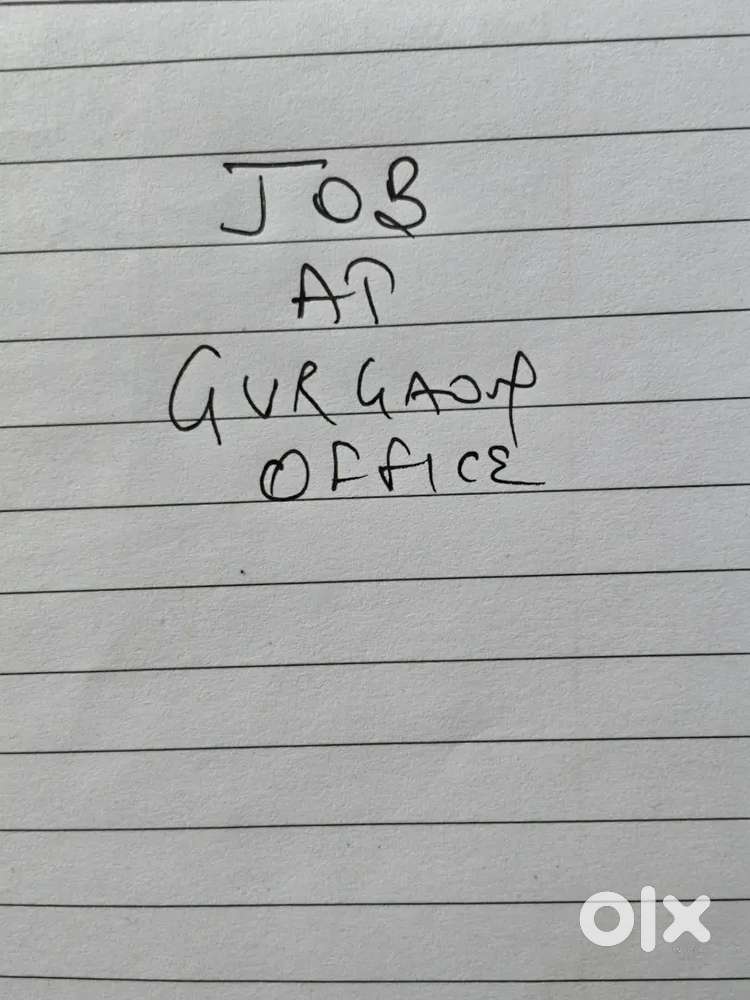 JOB
AT
GURGAON
OFFICE
olx